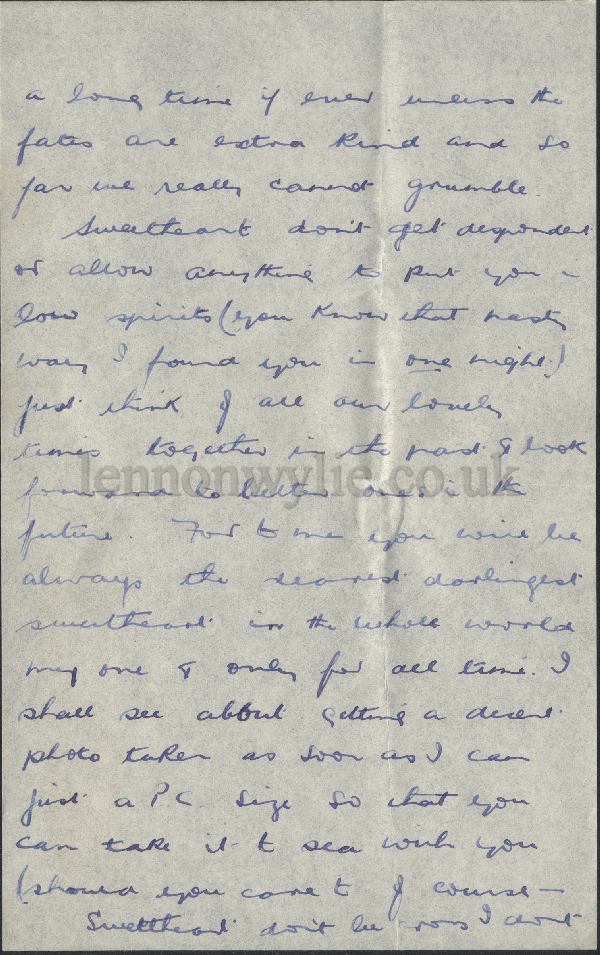 a long time if ever unless the
fates are extra kind and so
far we really cannot grumble.
Sweetheart don't get despondent
or allow anything to put you in
low spirits (you know that nasty
way I found you in one night.)
just think of all our lovely
times together in the past & look
forward to better ones in the
future. For to me you will be
always the dearest darlingest
sweetheart in the whole world
my one & only for all time. I
shall see about getting a decent
photo taken as soon as I can
just a PC size so that you
can take it to sea with you
(should you care to of course —
Sweetheart don't be cross I don't
lennonwylie.co.uk